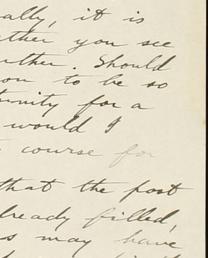 ally, it is
ther you see
rther. Should
on to be so
tunity for a
would I
course for
that the post
lready filled,
s may have